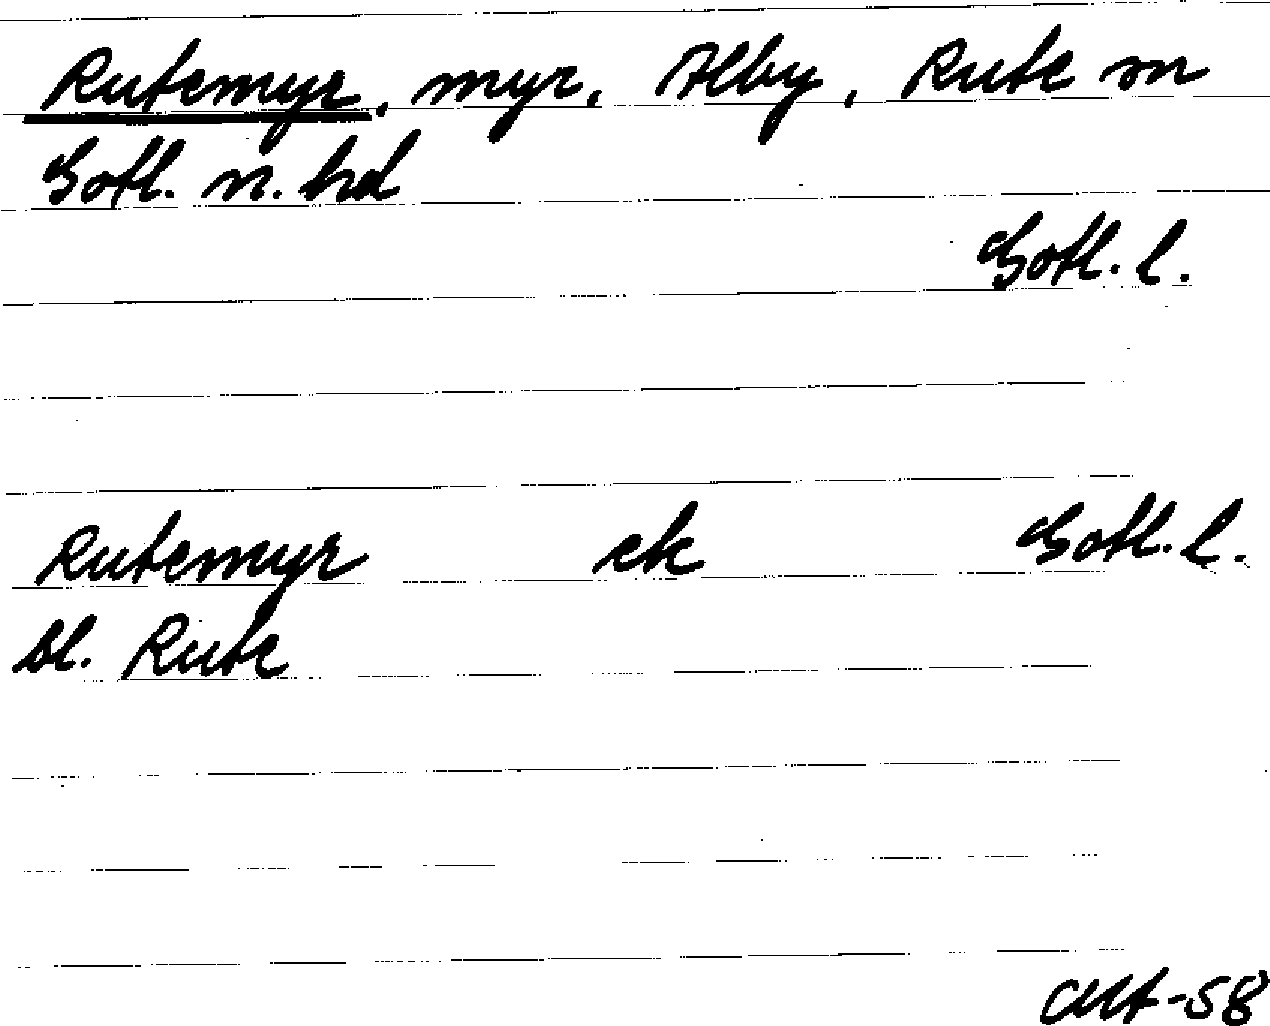 Rutemyr, myr, Alby, Rute sn
Gotl. n. hd
Gotl. l.
Rutemyr ek Gotl. l.
Bl. Rute